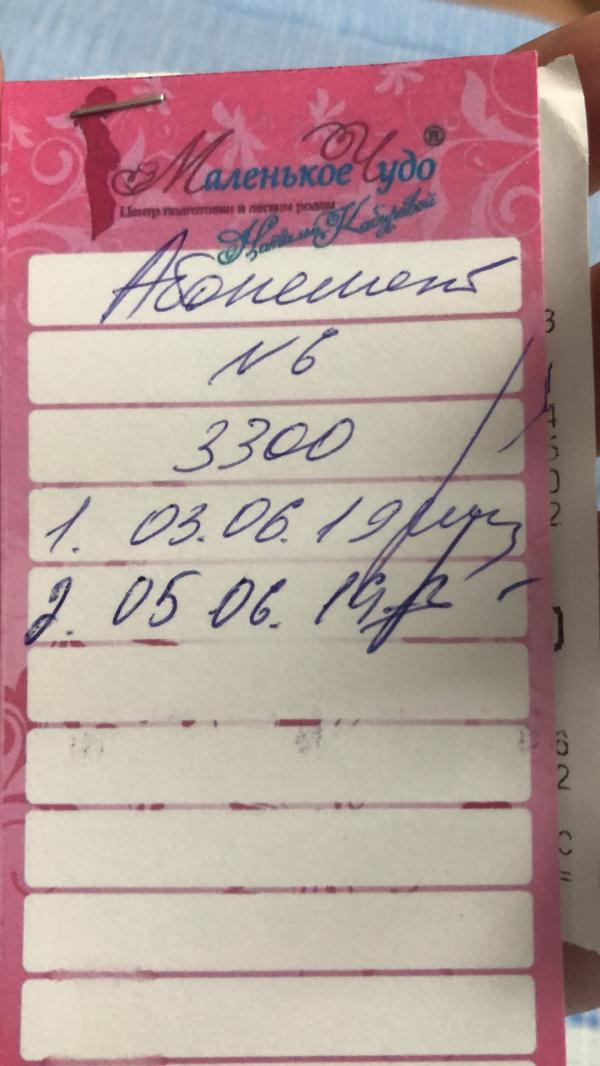 Маленькое Чудо®
Центр подготовки к легким родам
Натальи Кабировой
Абонемент
N 6
3300
1. 03.06.19
2. 05.06.19